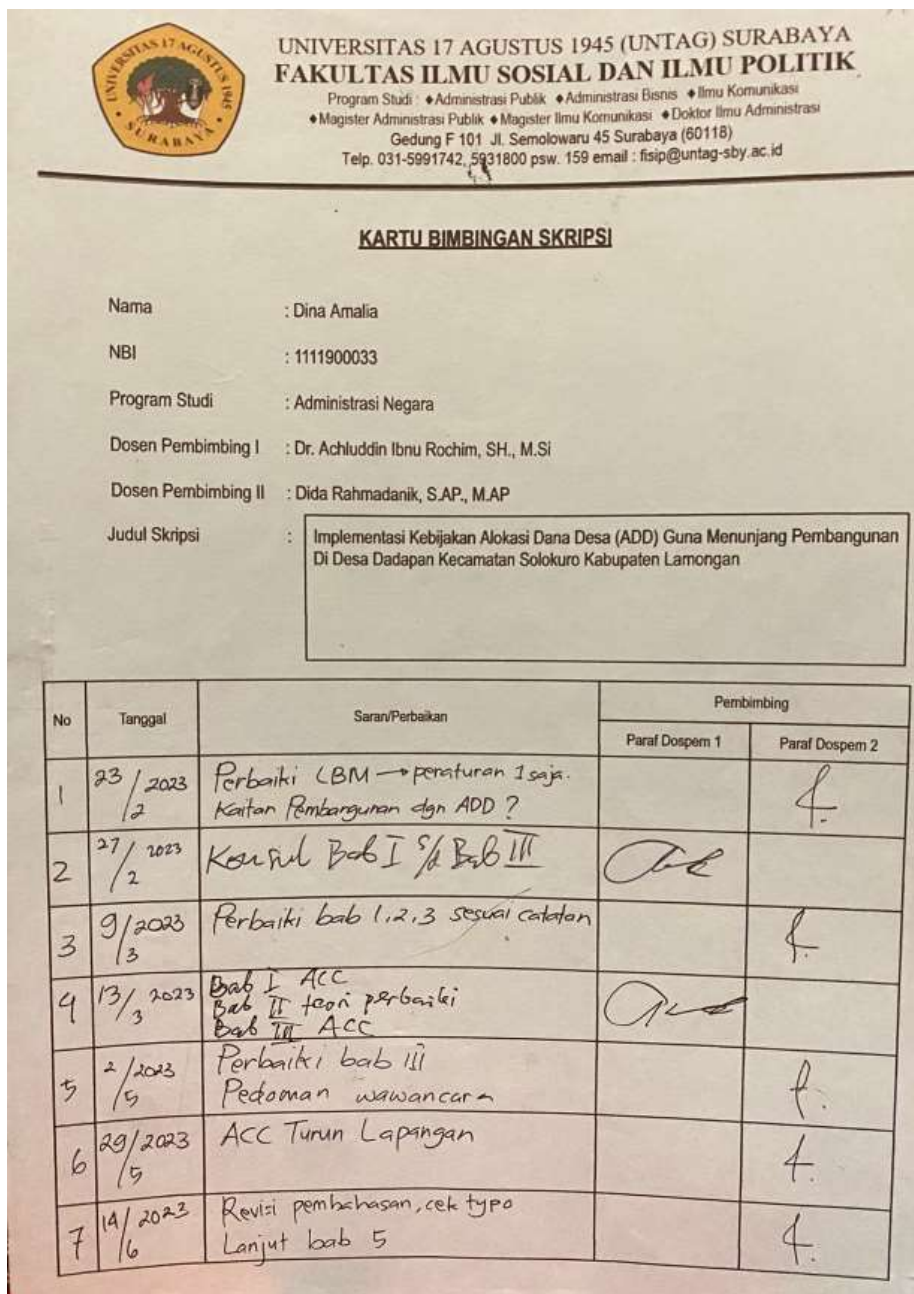 UNIVERSITAS 17 AGUSTUS 1945
SURABAYA
UNIVERSITAS 17 AGUSTUS 1945 (UNTAG) SURABAYA
FAKULTAS ILMU SOSIAL DAN ILMU POLITIK
Program Studi : ♦Administrasi Publik ♦Administrasi Bisnis ♦Ilmu Komunikasi
♦Magister Administrasi Publik ♦Magister Ilmu Komunikasi ♦Doktor Ilmu Administrasi
Gedung F 101 Jl. Semolowaru 45 Surabaya (60118)
Telp. 031-5991742, 5931800 psw. 159 email : fisip@untag-sby.ac.id
KARTU BIMBINGAN SKRIPSI
Nama : Dina Amalia
NBI : 1111900033
Program Studi : Administrasi Negara
Dosen Pembimbing I : Dr. Achluddin Ibnu Rochim, SH., M.Si
Dosen Pembimbing II : Dida Rahmadanik, S.AP., M.AP
Judul Skripsi : Implementasi Kebijakan Alokasi Dana Desa (ADD) Guna Menunjang Pembangunan
Di Desa Dadapan Kecamatan Solokuro Kabupaten Lamongan
No Tanggal Saran/Perbaikan Pembimbing
Paraf Dospem 1 Paraf Dospem 2
1 23/2 2023 Perbaiki LBM → peraturan 1 saja.
Kaitan Pembangunan dgn ADD ?
2 27/2 2023 Konsul Bab I s/d Bab III
3 9/3 2023 Perbaiki bab 1,2,3 sesuai catatan
4 13/3 2023 Bab I ACC
Bab II teori perbaiki
Bab III ACC
5 2/5 2023 Perbaiki bab III
Pedoman wawancara
6 29/5 2023 ACC Turun Lapangan
7 14/6 2023 Revisi pembahasan, cek typo
Lanjut bab 5